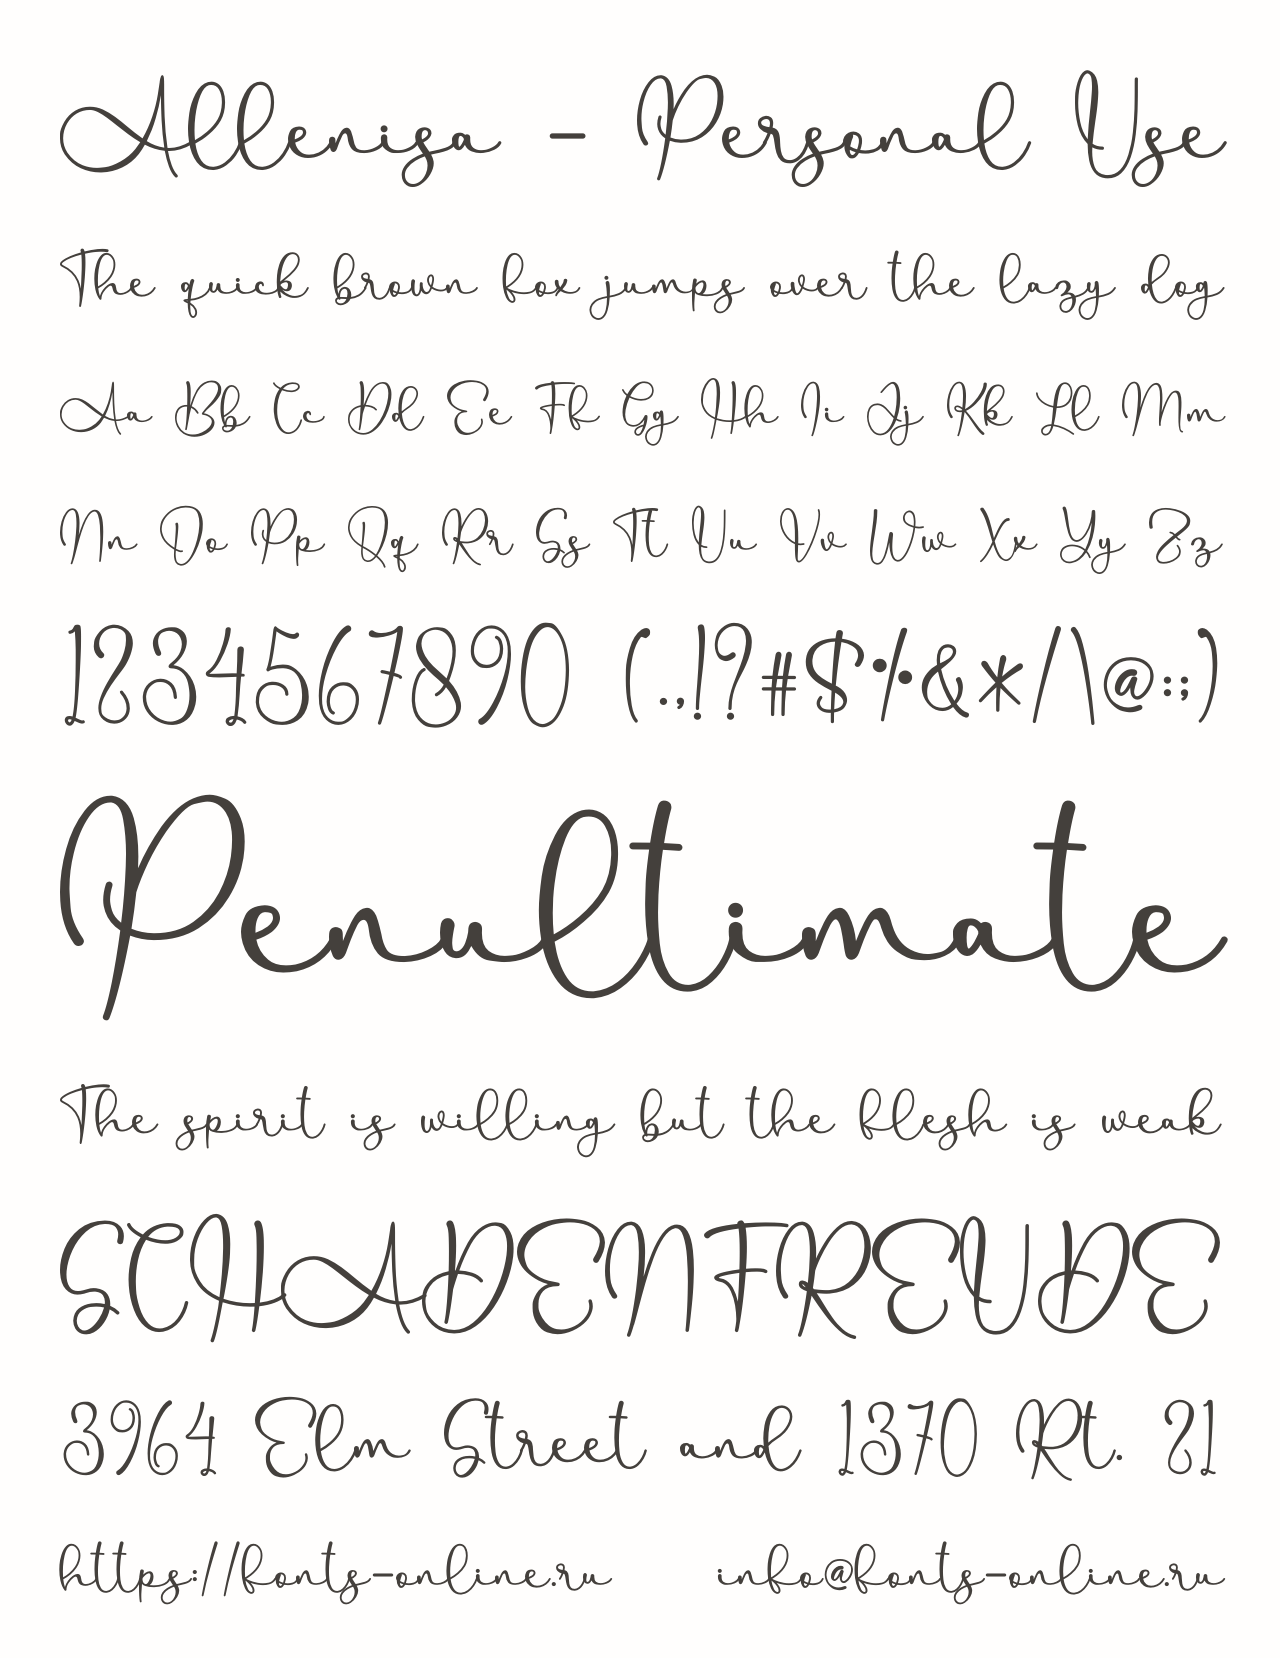 Allenisa - Personal Use
The quick brown fox jumps over the lazy dog
Aa Bb Cc Dd Ee Ff Gg Hh Ii Jj Kk Ll Mm
Nn Oo Pp Qq Rr Ss Tt Uu Vv Ww Xx Yy Zz
1234567890 (.,!?#$%&*/\@:;)
Penultimate
The spirit is willing but the flesh is weak
SCHADENFREUDE
3964 Elm Street and 1370 Rt. 21
https://fonts-online.ru info@fonts-online.ru